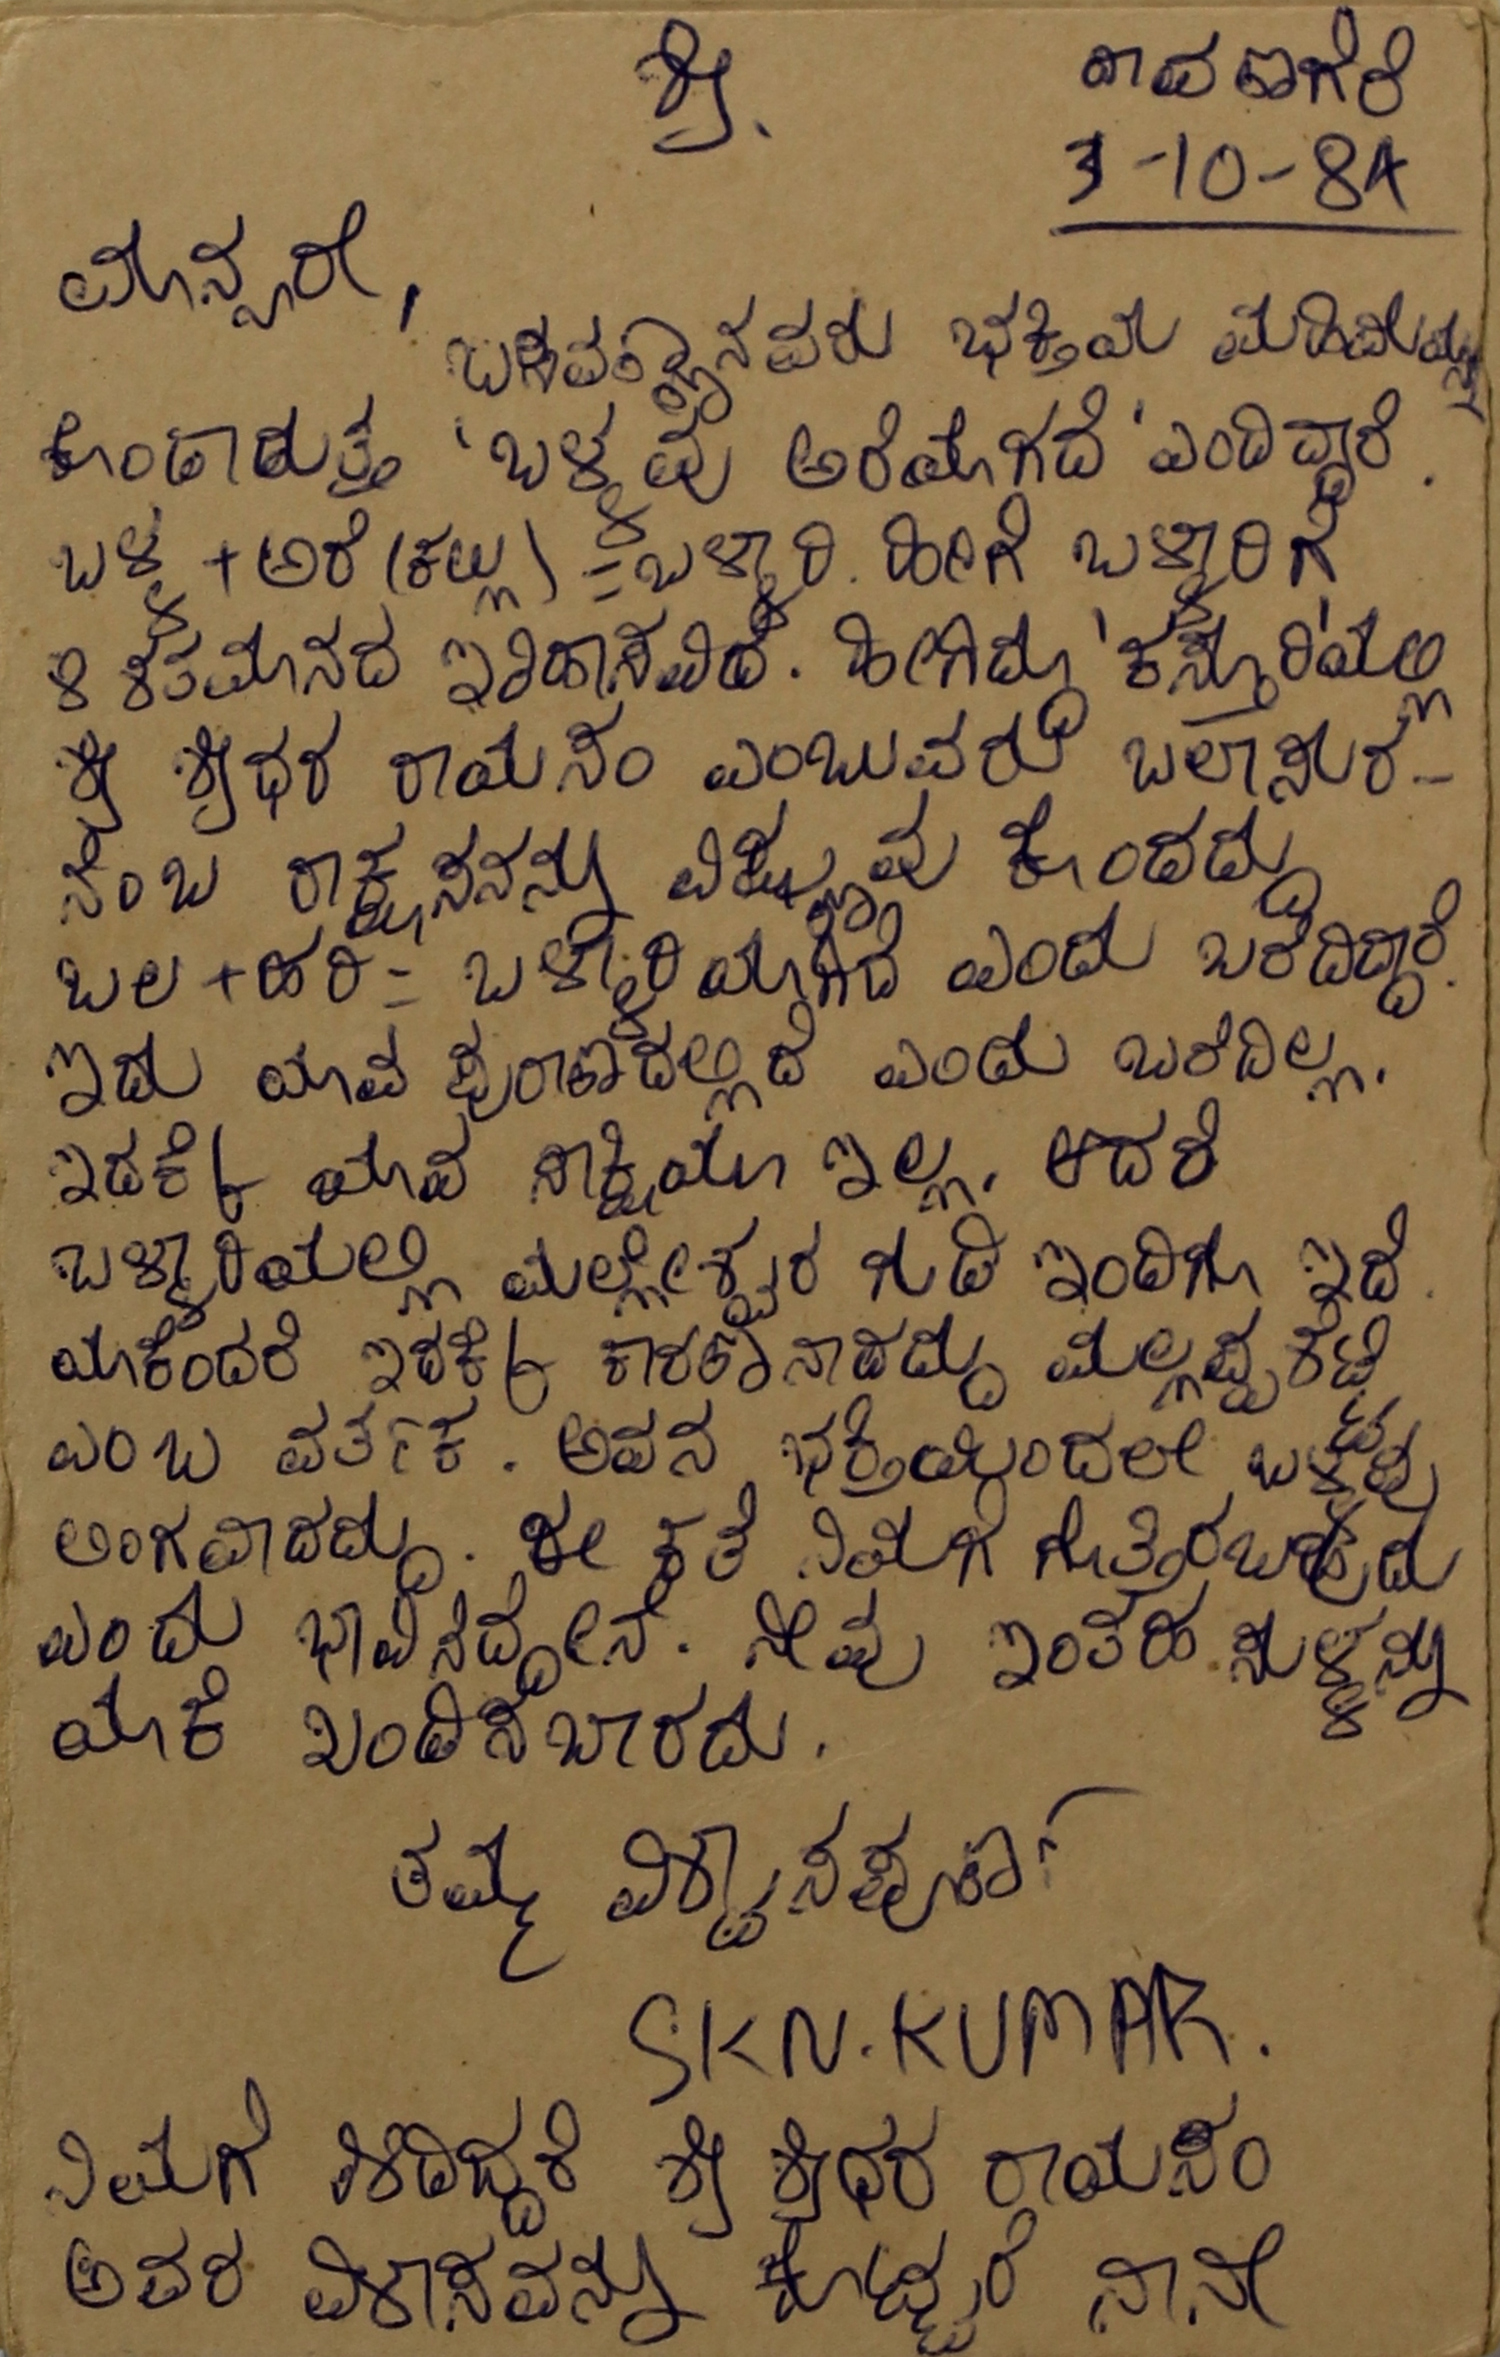 ಶ್ರೀ.
ದಾವಣಗೆರೆ
3-10-84
ಮಾನ್ಯರೇ,
ಬಸವಣ್ಣನವರು ಭಕ್ತಿಯ ಮಹಿಮೆಯನ್ನು
ಕೊಂಡಾಡುತ್ತಾ 'ಬಳ್ಳವು ಅರೆಯಾಗದೆ' ಎಂದಿದ್ದಾರೆ.
ಬಳ್ಳ + ಅರೆ (ಕಲ್ಲು) = ಬಳ್ಳಾರಿ. ಹೀಗೆ ಬಳ್ಳಾರಿಗೆ
8 ಶತಮಾನದ ಇತಿಹಾಸವಿದೆ. ಹೀಗಿದ್ದು 'ಕಸ್ತೂರಿ'ಯಲ್ಲಿ
ಶ್ರೀ ಶ್ರೀಧರ ರಾಯಸಂ ಎಂಬುವರು ಬಲಾಸುರ-
ನೆಂಬ ರಾಕ್ಷಸನನ್ನು ವಿಷ್ಣುವು ಕೊಂದದ್ದು
ಬಲ + ಹರಿ = ಬಳ್ಳಾರಿಯಾಗಿದೆ ಎಂದು ಬರೆದಿದ್ದಾರೆ.
ಇದು ಯಾವ ಪುರಾಣದಲ್ಲಿದೆ ಎಂದು ಬರೆದಿಲ್ಲ.
ಇದಕ್ಕೆ ಯಾವ ಸಾಕ್ಷಿಯೂ ಇಲ್ಲ. ಆದರೆ
ಬಳ್ಳಾರಿಯಲ್ಲಿ ಮಲ್ಲೇಶ್ವರ ಗುಡಿ ಇಂದಿಗೂ ಇದೆ.
ಯಾಕೆಂದರೆ ಇದಕ್ಕೆ ಕಾರಣನಾದದ್ದು ಮಲ್ಲಪ್ಪಶೆಟ್ಟಿ
ಎಂಬ ವರ್ತಕ. ಅವನ ಭಕ್ತಿಯಿಂದಲೇ ಬಳ್ಳವು
ಲಿಂಗವಾದದ್ದು. ಈ ಕತೆ ನಿಮಗೆ ಗೊತ್ತಿರಬಹುದು
ಎಂದು ಭಾವಿಸಿದ್ದೇನೆ. ನೀವು ಇಂತಹ ಸುಳ್ಳನ್ನು
ಯಾಕೆ ಖಂಡಿಸಬಾರದು.
ತಮ್ಮ ವಿಶ್ವಾಸಪೂರ್ಣ
SKN.KUMAR.
ನಿಮಗೆ ಹಿಡಿದಿದ್ದರೆ ಶ್ರೀ ಶ್ರೀಧರ ರಾಯಸಂ
ಅವರ ವಿಳಾಸವನ್ನು ಕೊಟ್ಟರೆ ನಾನೇ